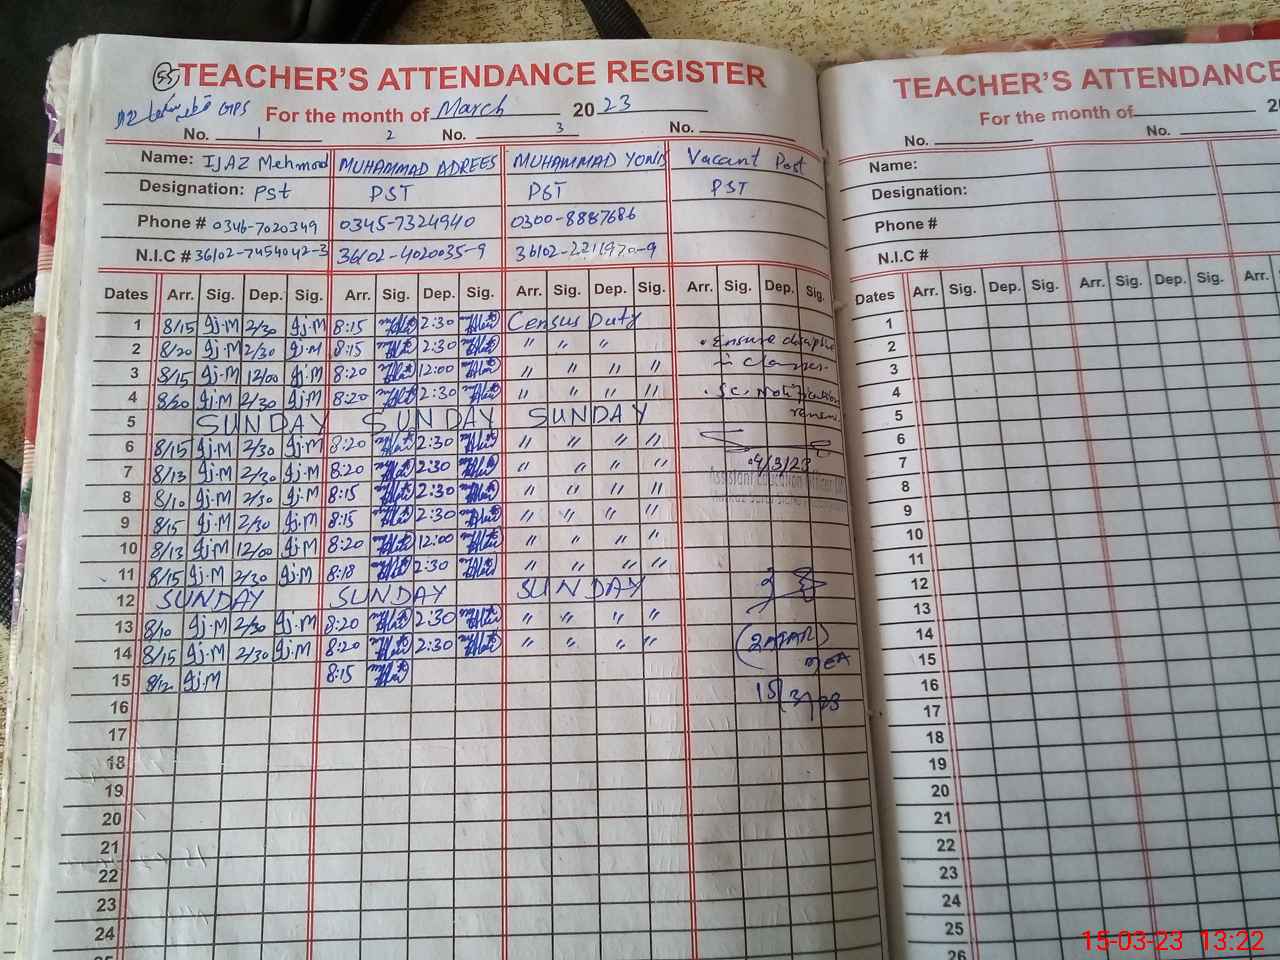 55 TEACHER'S ATTENDANCE REGISTER
GPS For the month of March 2023
No. 1 2 No. 3 No.
Name: IJAZ Mehmood MUHAMMAD ADREES MUHAMMAD YONIS Vacant Post
Designation: Pst PST PST PST
Phone # 0346-7020349 0345-7324940 0300-8887686
N.I.C # 36102-7454042-3 36102-4020035-9 36102-2211970-9
Dates Arr. Sig. Dep. Sig. Arr. Sig. Dep. Sig. Arr. Sig. Dep. Sig. Arr. Sig. Dep. Sig.
1 8/15 Ij.M 2/30 Ij.M 8:15 2:30 Census Duty
2 8/20 Ij.M 2/30 Ij.M 8:15 2:30 〃 〃 〃 • Ensure
3 8/15 Ij.M 12/00 Ij.M 8:20 12:00 〃 〃 〃 〃 in classes.
4 8/20 Ij.M 2/30 Ij.M 8:20 2:30 〃 〃 〃 〃 • Sc. Notification
5 SUNDAY SUNDAY SUNDAY
6 8/15 Ij.M 2/30 Ij.M 8:20 2:30 〃 〃 〃 〃
7 8/13 Ij.M 2/30 Ij.M 8:20 2:30 〃 〃 〃 〃 04/3/23
8 8/10 Ij.M 2/30 Ij.M 8:15 2:30 〃 〃 〃 〃 Assistant Education Officer
9 8/15 Ij.M 2/30 Ij.M 8:15 2:30 〃 〃 〃 〃
10 8/13 Ij.M 12/00 Ij.M 8:20 12:00 〃 〃 〃 〃
11 8/15 Ij.M 2/30 Ij.M 8:18 2:30 〃 〃 〃 〃
12 SUNDAY SUNDAY SUNDAY
13 8/10 Ij.M 2/30 Ij.M 8:20 2:30 〃 〃 〃 〃
14 8/15 Ij.M 2/30 Ij.M 8:20 2:30 〃 〃 〃 〃 (ZAFAR)
15 8/12 Ij.M 8:15 MEA
16 15/3/23
17
18
19
20
21
22
23
24
TEACHER'S ATTENDANCE
For the month of
No. No.
Name:
Designation:
Phone #
N.I.C #
Dates Arr. Sig. Dep. Sig. Arr. Sig. Dep. Sig. Arr.
1
2
3
4
5
6
7
8
9
10
11
12
13
14
15
16
17
18
19
20
21
22
23
24
25
26
15-03-23 13:22